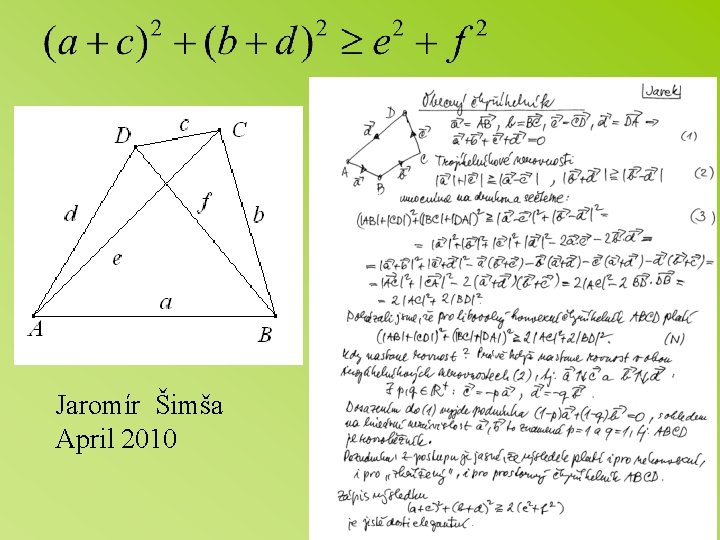 (a + c)² + (b + d)² ≥ e² + f²
D c C
d f b
e
a
A B
Jaromír Šimša
April 2010
Obecný čtyřúhelník
Jarek
D
A B C
a⃗ = AB⃗, b⃗ = BC⃗, c⃗ = CD⃗, d⃗ = DA⃗ ⇒
a⃗ + b⃗ + c⃗ + d⃗ = 0 (1)
Trojúhelníkové nerovnosti
|a⃗| + |c⃗| ≥ |a⃗ - c⃗|, |b⃗| + |d⃗| ≥ |b⃗ - d⃗| (2)
umocníme na druhou a sečteme:
(|AB| + |CD|)² + (|BC| + |DA|)² ≥ |a⃗ - c⃗|² + |b⃗ - d⃗|² = (3)
= |a⃗|² + |b⃗|² + |c⃗|² + |d⃗|² - 2a⃗c⃗ - 2b⃗d⃗ =
= |AC⃗|² + |CA⃗|² - 2(a⃗ + d⃗)(b⃗ + c⃗) = 2|AC|² - 2 DB⃗·DB⃗ =
= 2|AC|² + 2|BD|²
Dokázali jsme, že pro libovolný konvexní čtyřúhelník ABCD platí
(|AB| + |CD|)² + (|BC| + |DA|)² ≥ 2|AC|² + 2|BD|². (N)
Kdy nastane rovnost? Právě když nastane rovnost v obou
trojúhelníkových nerovnostech (2), tj.
∃ p, q ∈ ℝ⁺: c⃗ = -p a⃗, d⃗ = -q b⃗.
Dosazením do (1) vyjde podmínka (1-p)a⃗ + (1-q)b⃗ = 0, s ohledem
na lineární nezávislost a⃗, b⃗ to znamená p = 1 a q = 1, tj. ABCD
je rovnoběžník.
Poznámka: Z postupu je jasné, že výsledek platí i pro nekonvexní,
i pro "zkřížený", i pro prostorový čtyřúhelník ABCD.
Zápis výsledku
(a+c)² + (b+d)² ≥ 2(e² + f²)
je jistě dosti elegantní.